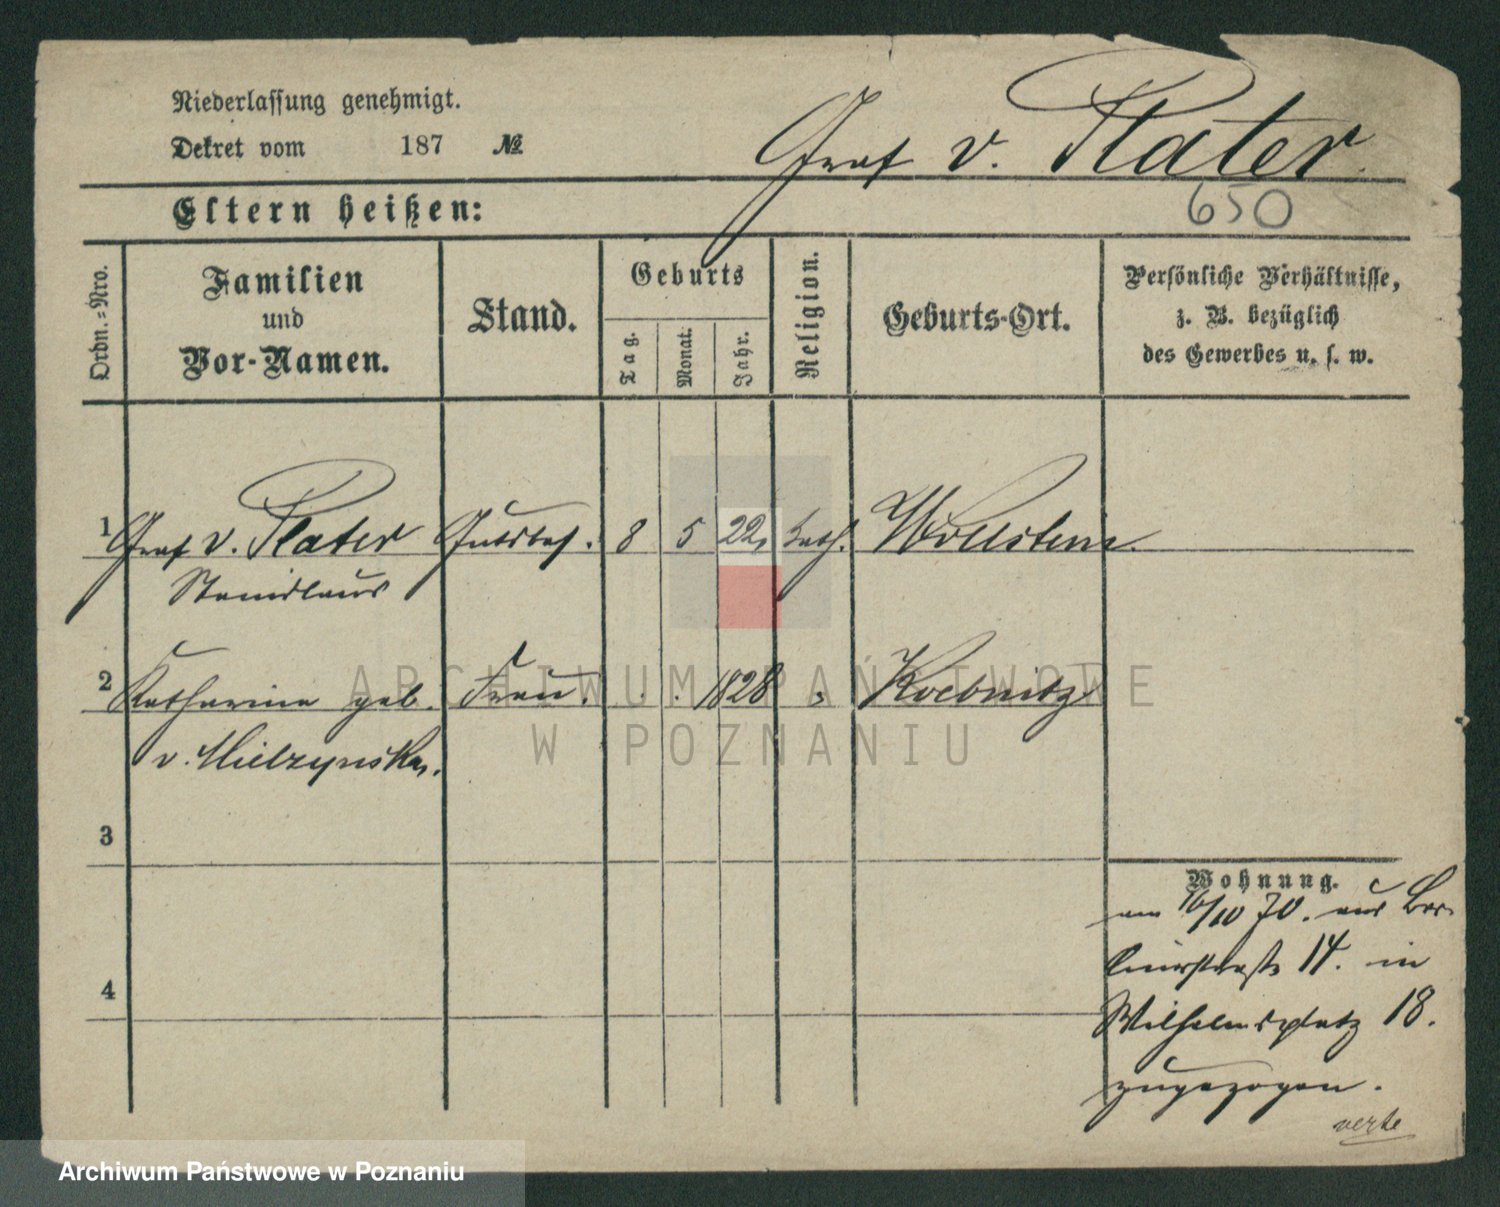 Niederlassung genehmigt.
Dekret vom 187 №
Graf v. Plater.
650
Eltern heißen:
Ordn.=Nro.
Familien
und
Vor-Namen.
Stand.
Geburts
Tag.
Monat.
Jahr.
Religion.
Geburts-Ort.
Persönliche Verhältnisse,
z. B. bezüglich
des Gewerbes u. s. w.
1 Graf v. Plater Gutsbes. 8 5 22, kath. Wollstein.
Stanislaus
2 Katharina geb. Frau. . . 1828 Koebnitz
v. Mielzynska.
3
4
Wohnung.
am 16/10 70. aus Ber-
linerstraße 14. in
Wilhelmsplatz 18.
zugezogen.
verte
ARCHIWUM PAŃSTWOWE
W POZNANIU
Archiwum Państwowe w Poznaniu